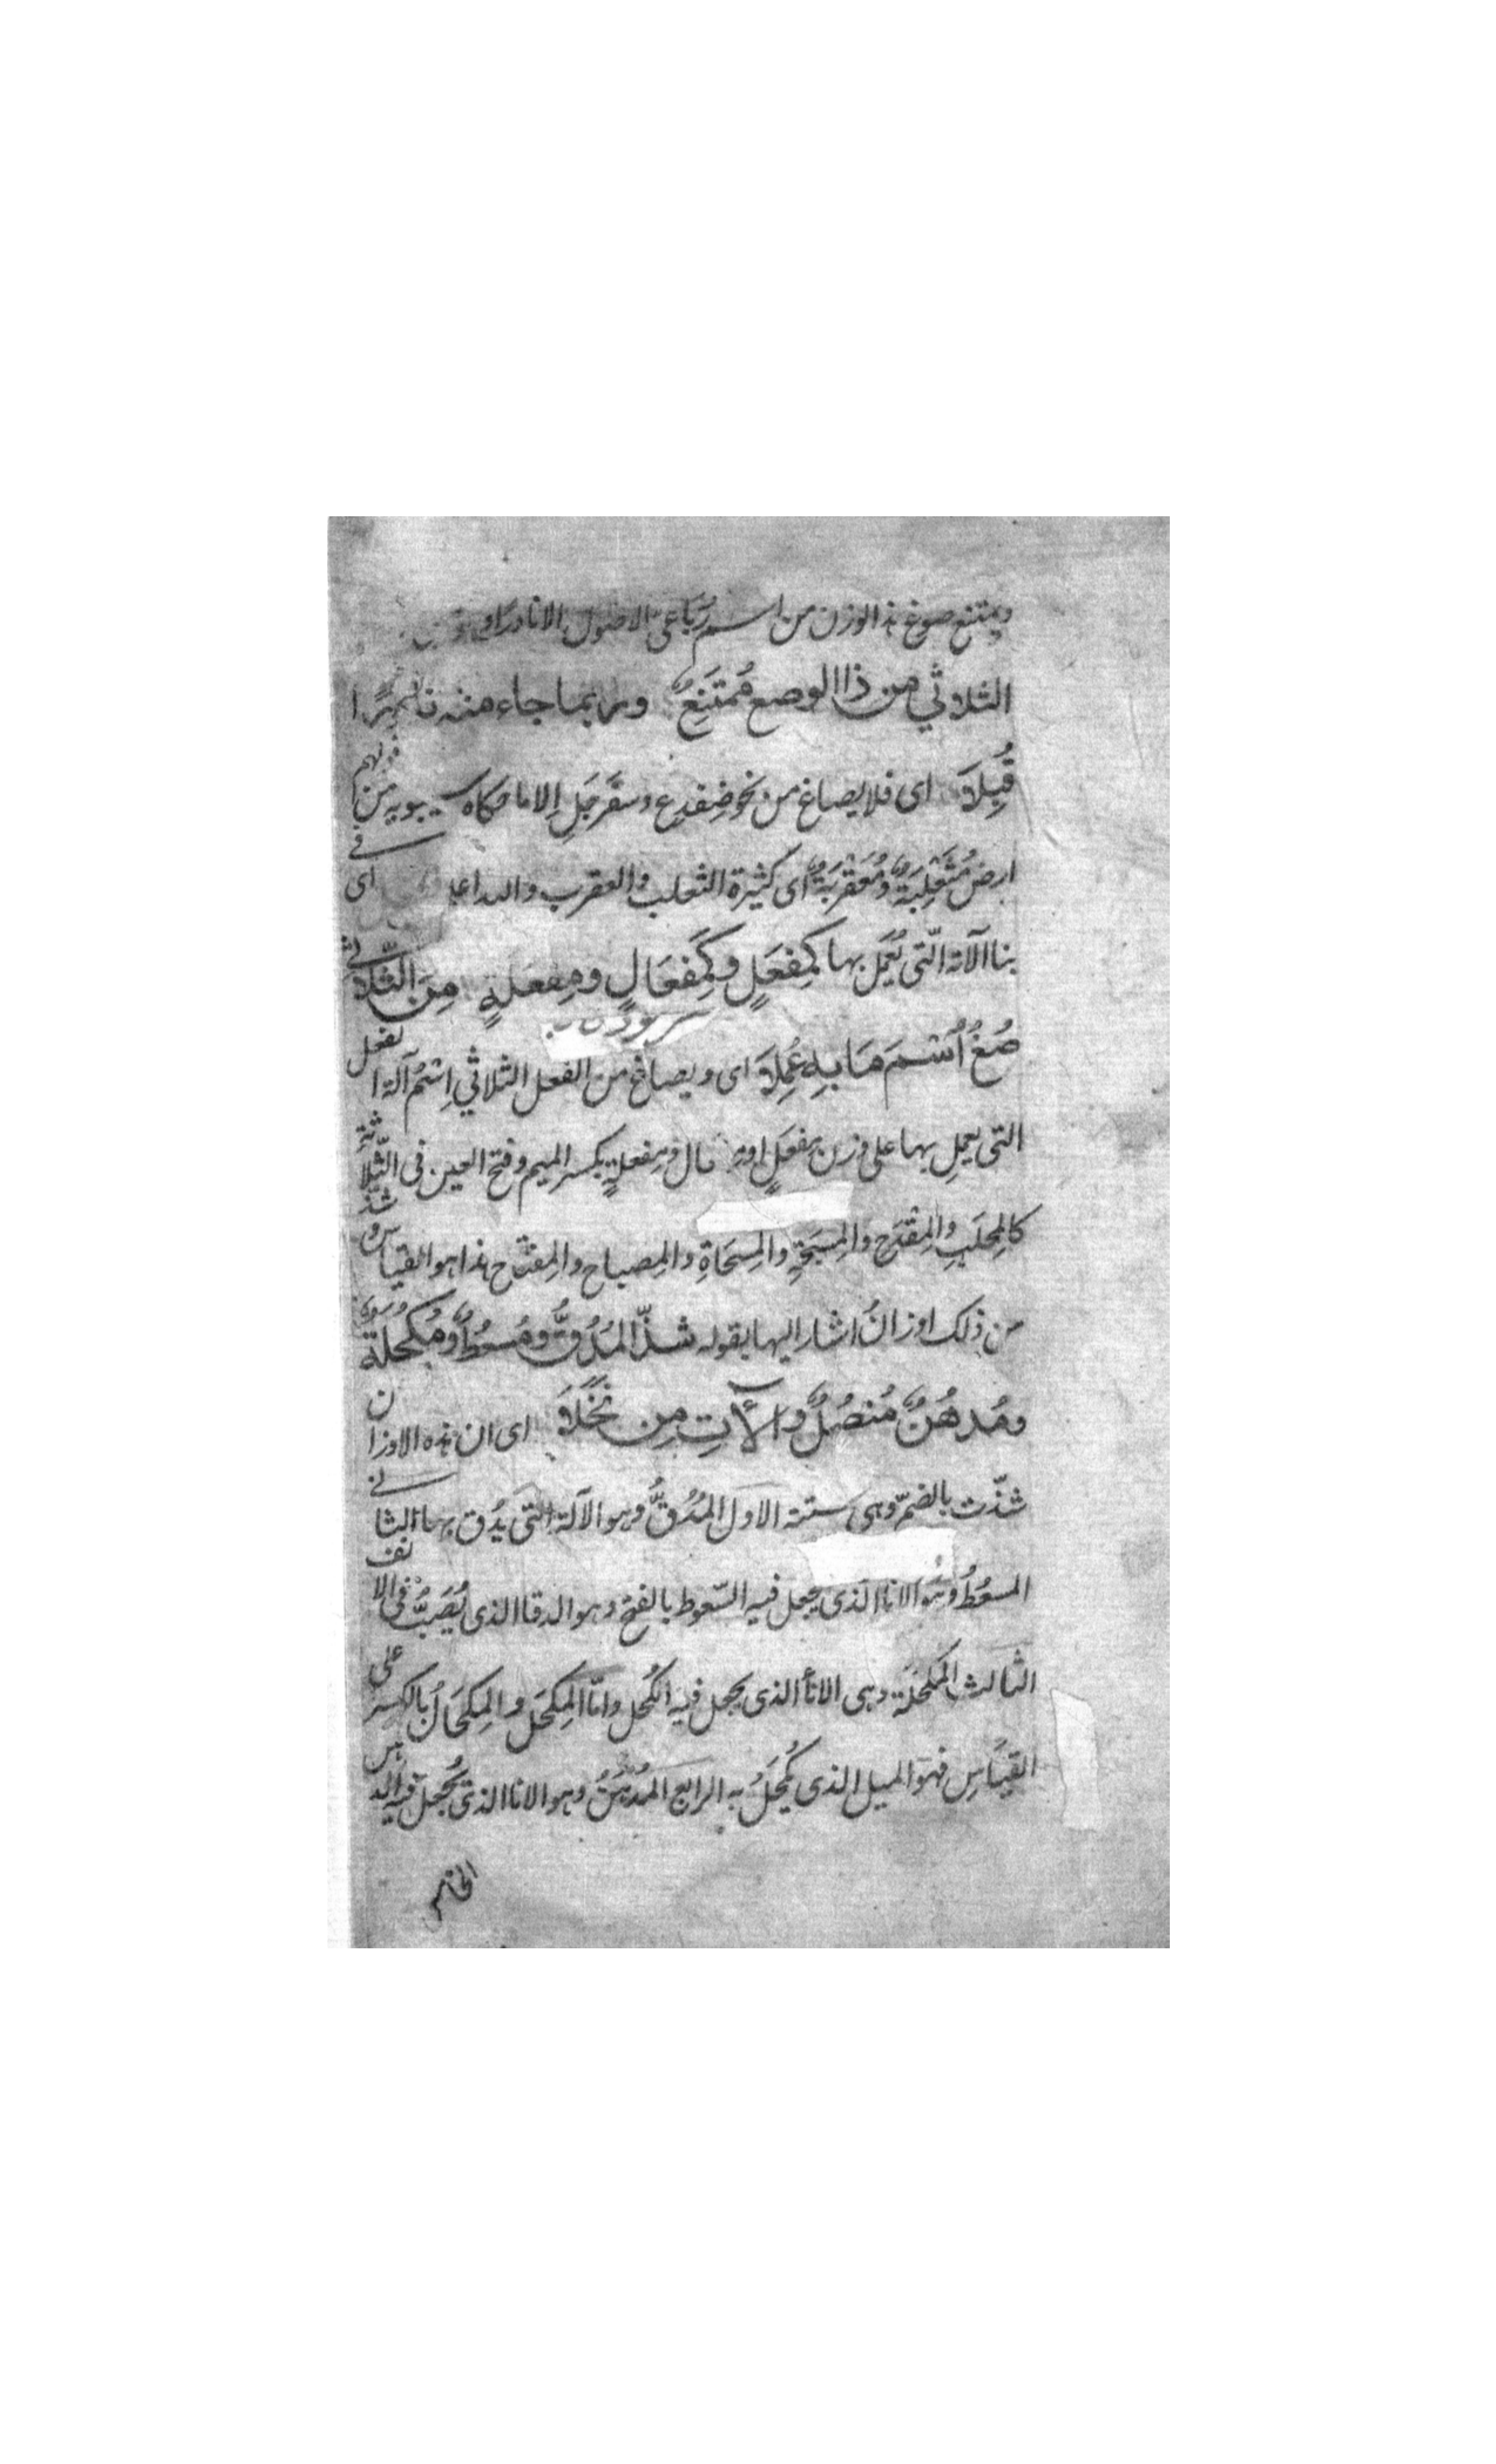 ويمتنع صوغ هذا الوزن من اسم رُبَاعيّ الاصول الا نادرا
الثلاثي من ذا الوصع مُمتَنِعٌ وربما جاء منه نا
قُبِلَا اى فلا يصاغ من نحو ضِفدِع وسفَرجَلٍ الا ما حكاه سيبويه من قولهم
ارض مُثَعْلِبَةٌ ومُعَقْرِبَةٌ اى كثيرة الثعلب والعقرب اى فى
بنا الآلة الّتى يُعمَل بها كَمِفعَلٍ وكَمِفعَالٍ ومِفعَلةٍ مِنَ الثّلاثي
صُغُ اُسْمَ مَا بِهِ عُمِلَا اى ويصاغ من الفعل الثلاثي اِسْمُ آلة الفعل
التى يعمل بها على وزن مِفعَلٍ او ومِفعلةٍ بكسر الميم وفتح العين فى الثّلاثة
كالمِحلَبِ والمِقْدَحِ والمِسبَحَةِ والمِسحَاةِ والمِصباح والمِفتَاح هذا هو القياس وشذّ
من ذلك اوزانٌ اشار اليها بقوله شذّ المُدُقُّ ومُسعُطٌ ومُكحُلَةٌ
ومُدهُنٌ مُنصُلٌ والآتِ مِن نَخَلَا اى ان هذه الاوزان
شذّت بالضمّ وهى ستة الاول المُدُقُّ وهو الآلة التى يُدُق بها الثانى
المسعُطُ وهُو الانا الذى يجعل فيه السّعوط بالفتح وهو الدقا الذى يُصَبُّ فى الانف
الثالث المُكحُلَة وهى الاناء الذى يجعل فيه الكُحل وامّا المِكحَل والمِكحَالُ بالكسر على
القيَاسِ فهوَ الميل الذى يُكحَلُ به الرابع المُدْهُنُ وهو الانا الذى يُجعل فيه الدهن
الخامس